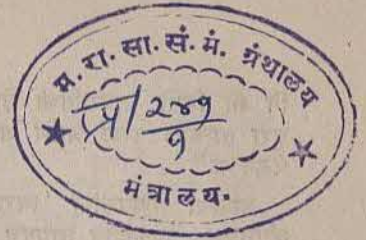 म. रा. सा. सं. मं. ग्रंथालय
प्र/२४१
१
मंत्रालय.